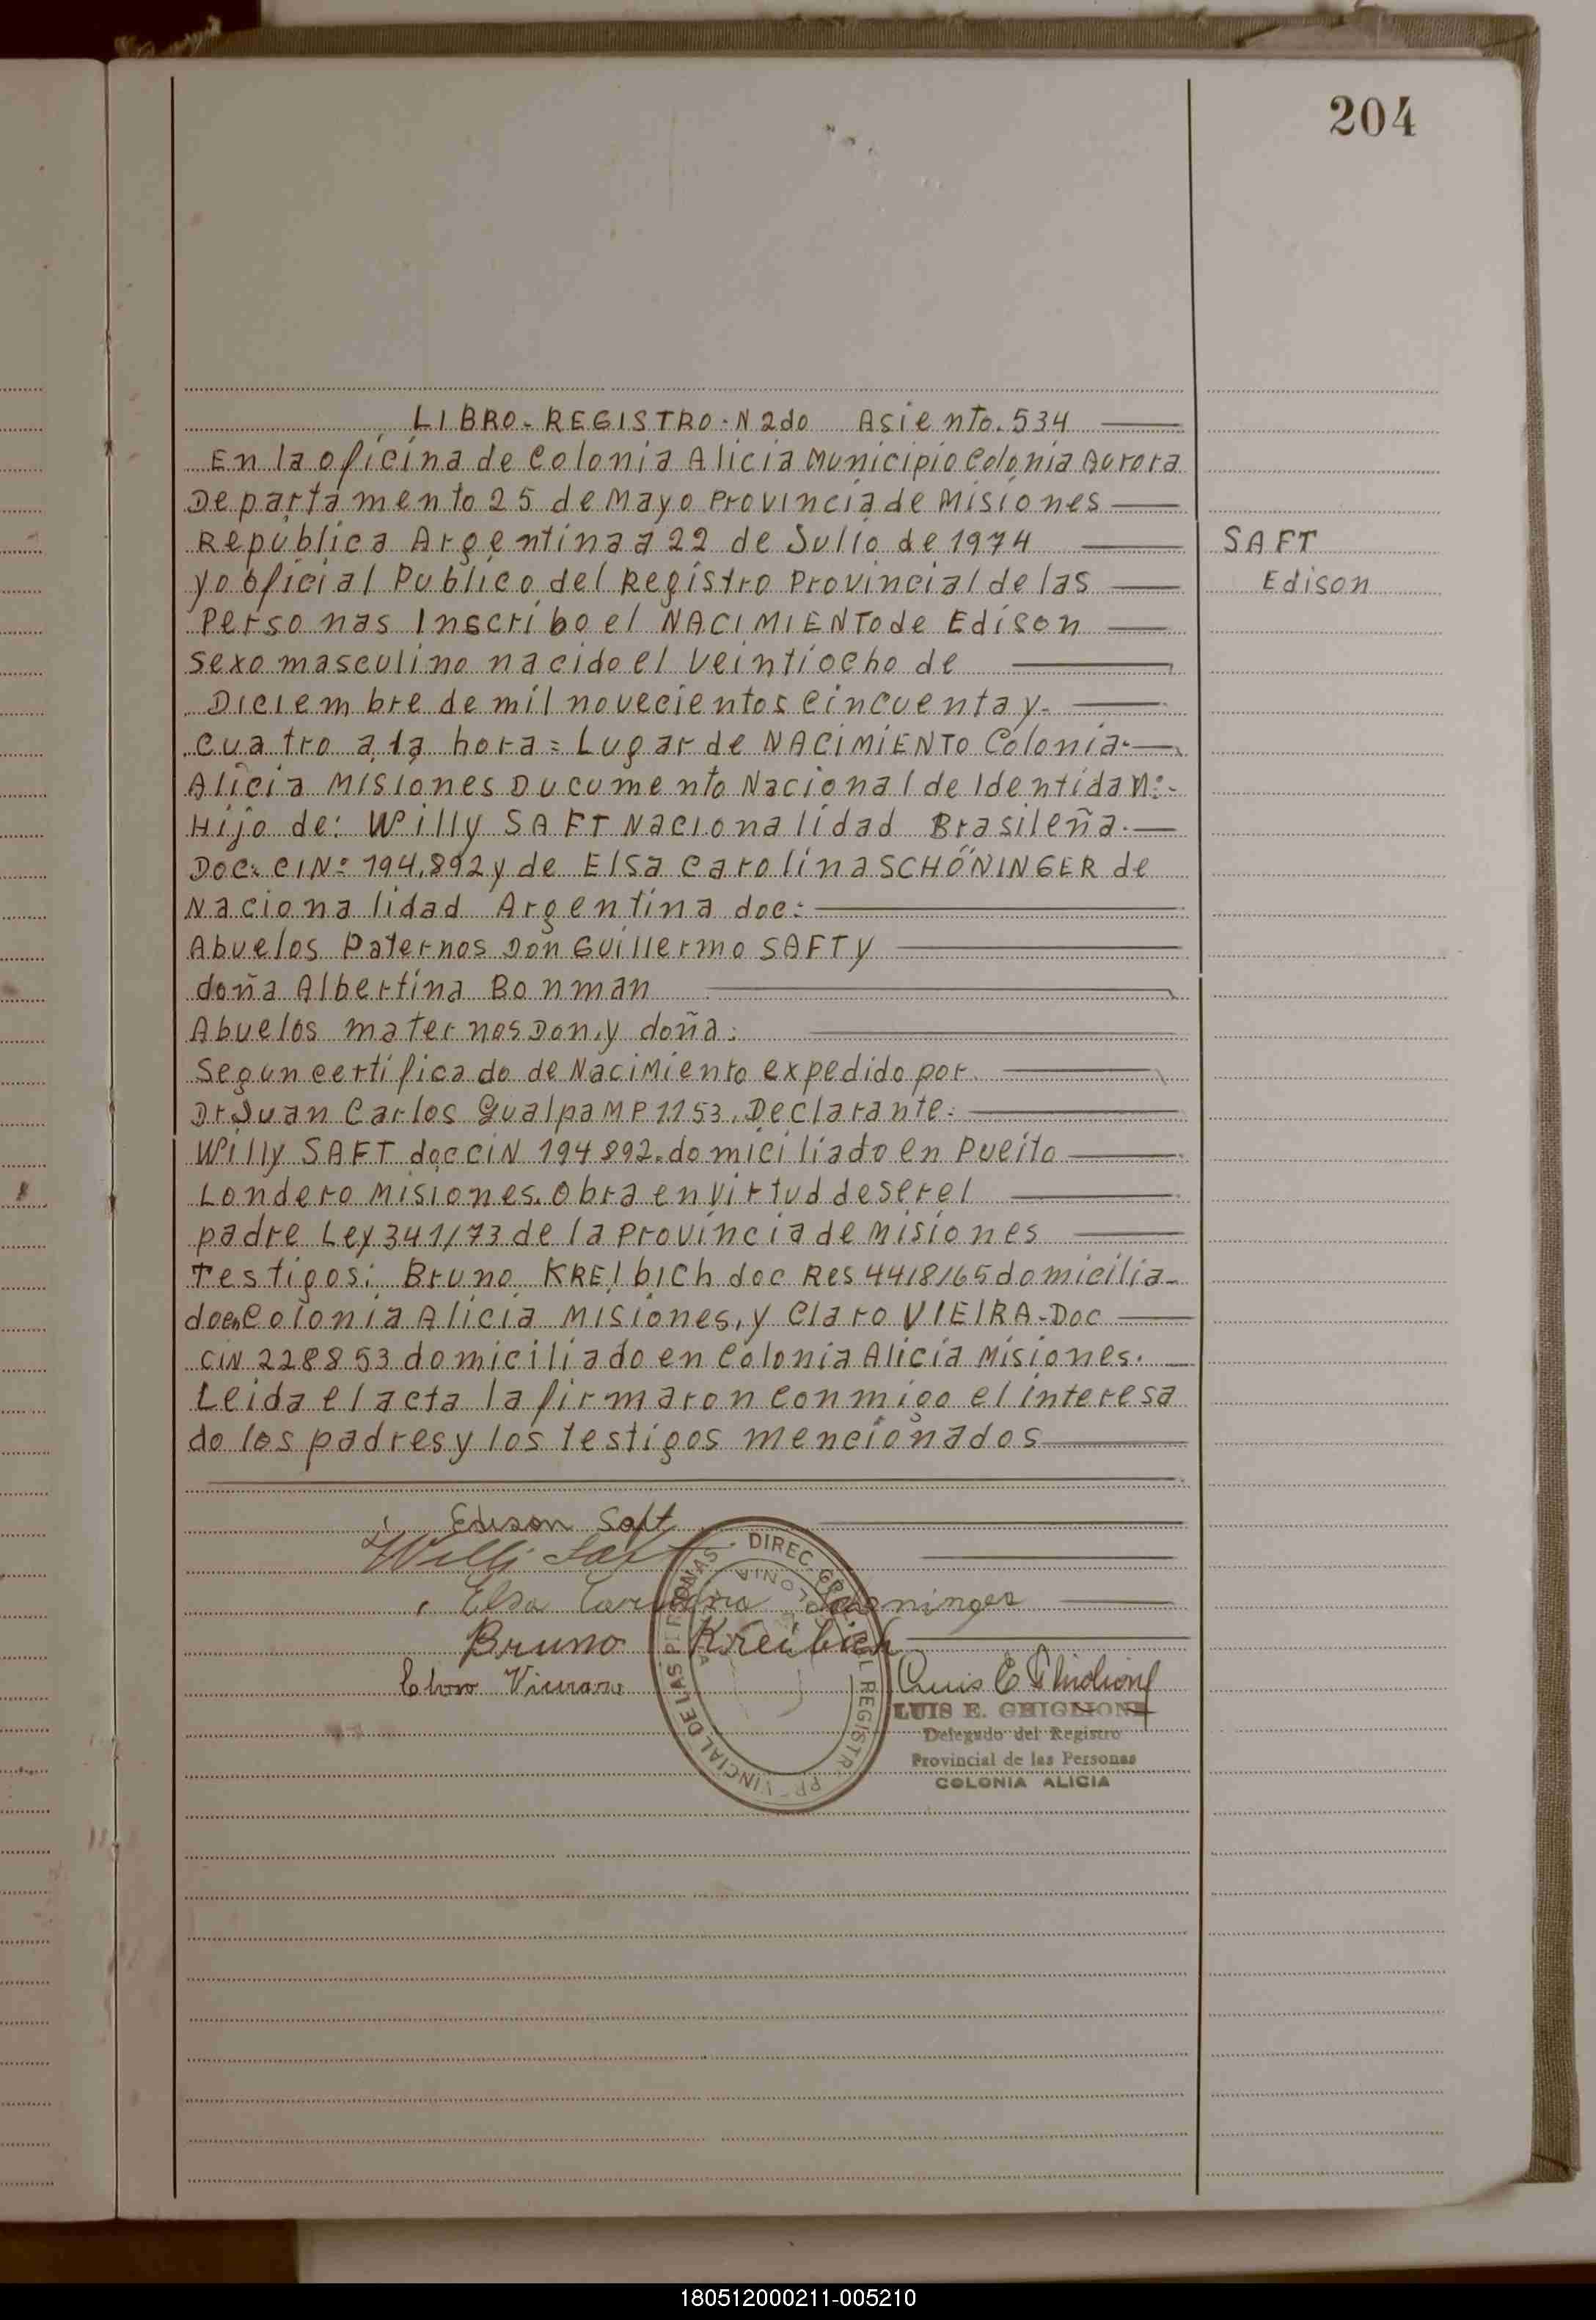 204
LIBRO-REGISTRO-N 2do Asiento.534
En la oficina de Colonia Alicia Municipio Colonia Aurora
Departamento 25 de Mayo Provincia de Misiones
Republica Argentina a 22 de Julio de 1974
SAFT
yo oficial Publico del Registro Provincial de las
Edison
Personas Inscribo el NACIMIENTO de Edison
Sexo masculino nacido el Veintiocho de
Diciembre de mil novecientos cincuenta y-
cuatro a la hora = Lugar de NACIMIENTO Colonia-
Alicia Misiones Ducumento Nacional de Identidad N:-
Hijo de: Willy SAFT Nacionalidad Brasileña.-
Doc: CIN: 194.892 y de Elsa Carolina SCHÖNINGER de
Nacionalidad Argentina doc:
Abuelos Paternos Don Guillermo SAFT y
doña Albertina Bonman
Abuelos maternos Don y doña:
Segun certificado de Nacimiento expedido por
Dr Juan Carlos Gualpa MP 1153. Declarante:
Willy SAFT doc CIN 194892. domiciliado en Pueito
Londero Misiones. Obra en virtud de ser el
padre Ley 341/73 de la Provincia de Misiones
Testigos: Bruno KREIbICh doc Res 4418/65 domicilia-
do en Colonia Alicia Misiones, y Claro VIEIRA-Doc
CIN 228853 domiciliado en Colonia Alicia Misiones.
Leida el acta la firmaron conmigo el interesa
do los padres y los testigos mencionados
Edison Saft
Willi Saft
Elsa Carolina Schoninger
Bruno Kreibich
DIREC. GRAL. DEL REGISTR PROVINCIAL DE LAS PERSONAS
COLONIA
LUIS E. GHIGLIONE
Delegado del Registro
Provincial de las Personas
COLONIA ALICIA
180512000211-005210